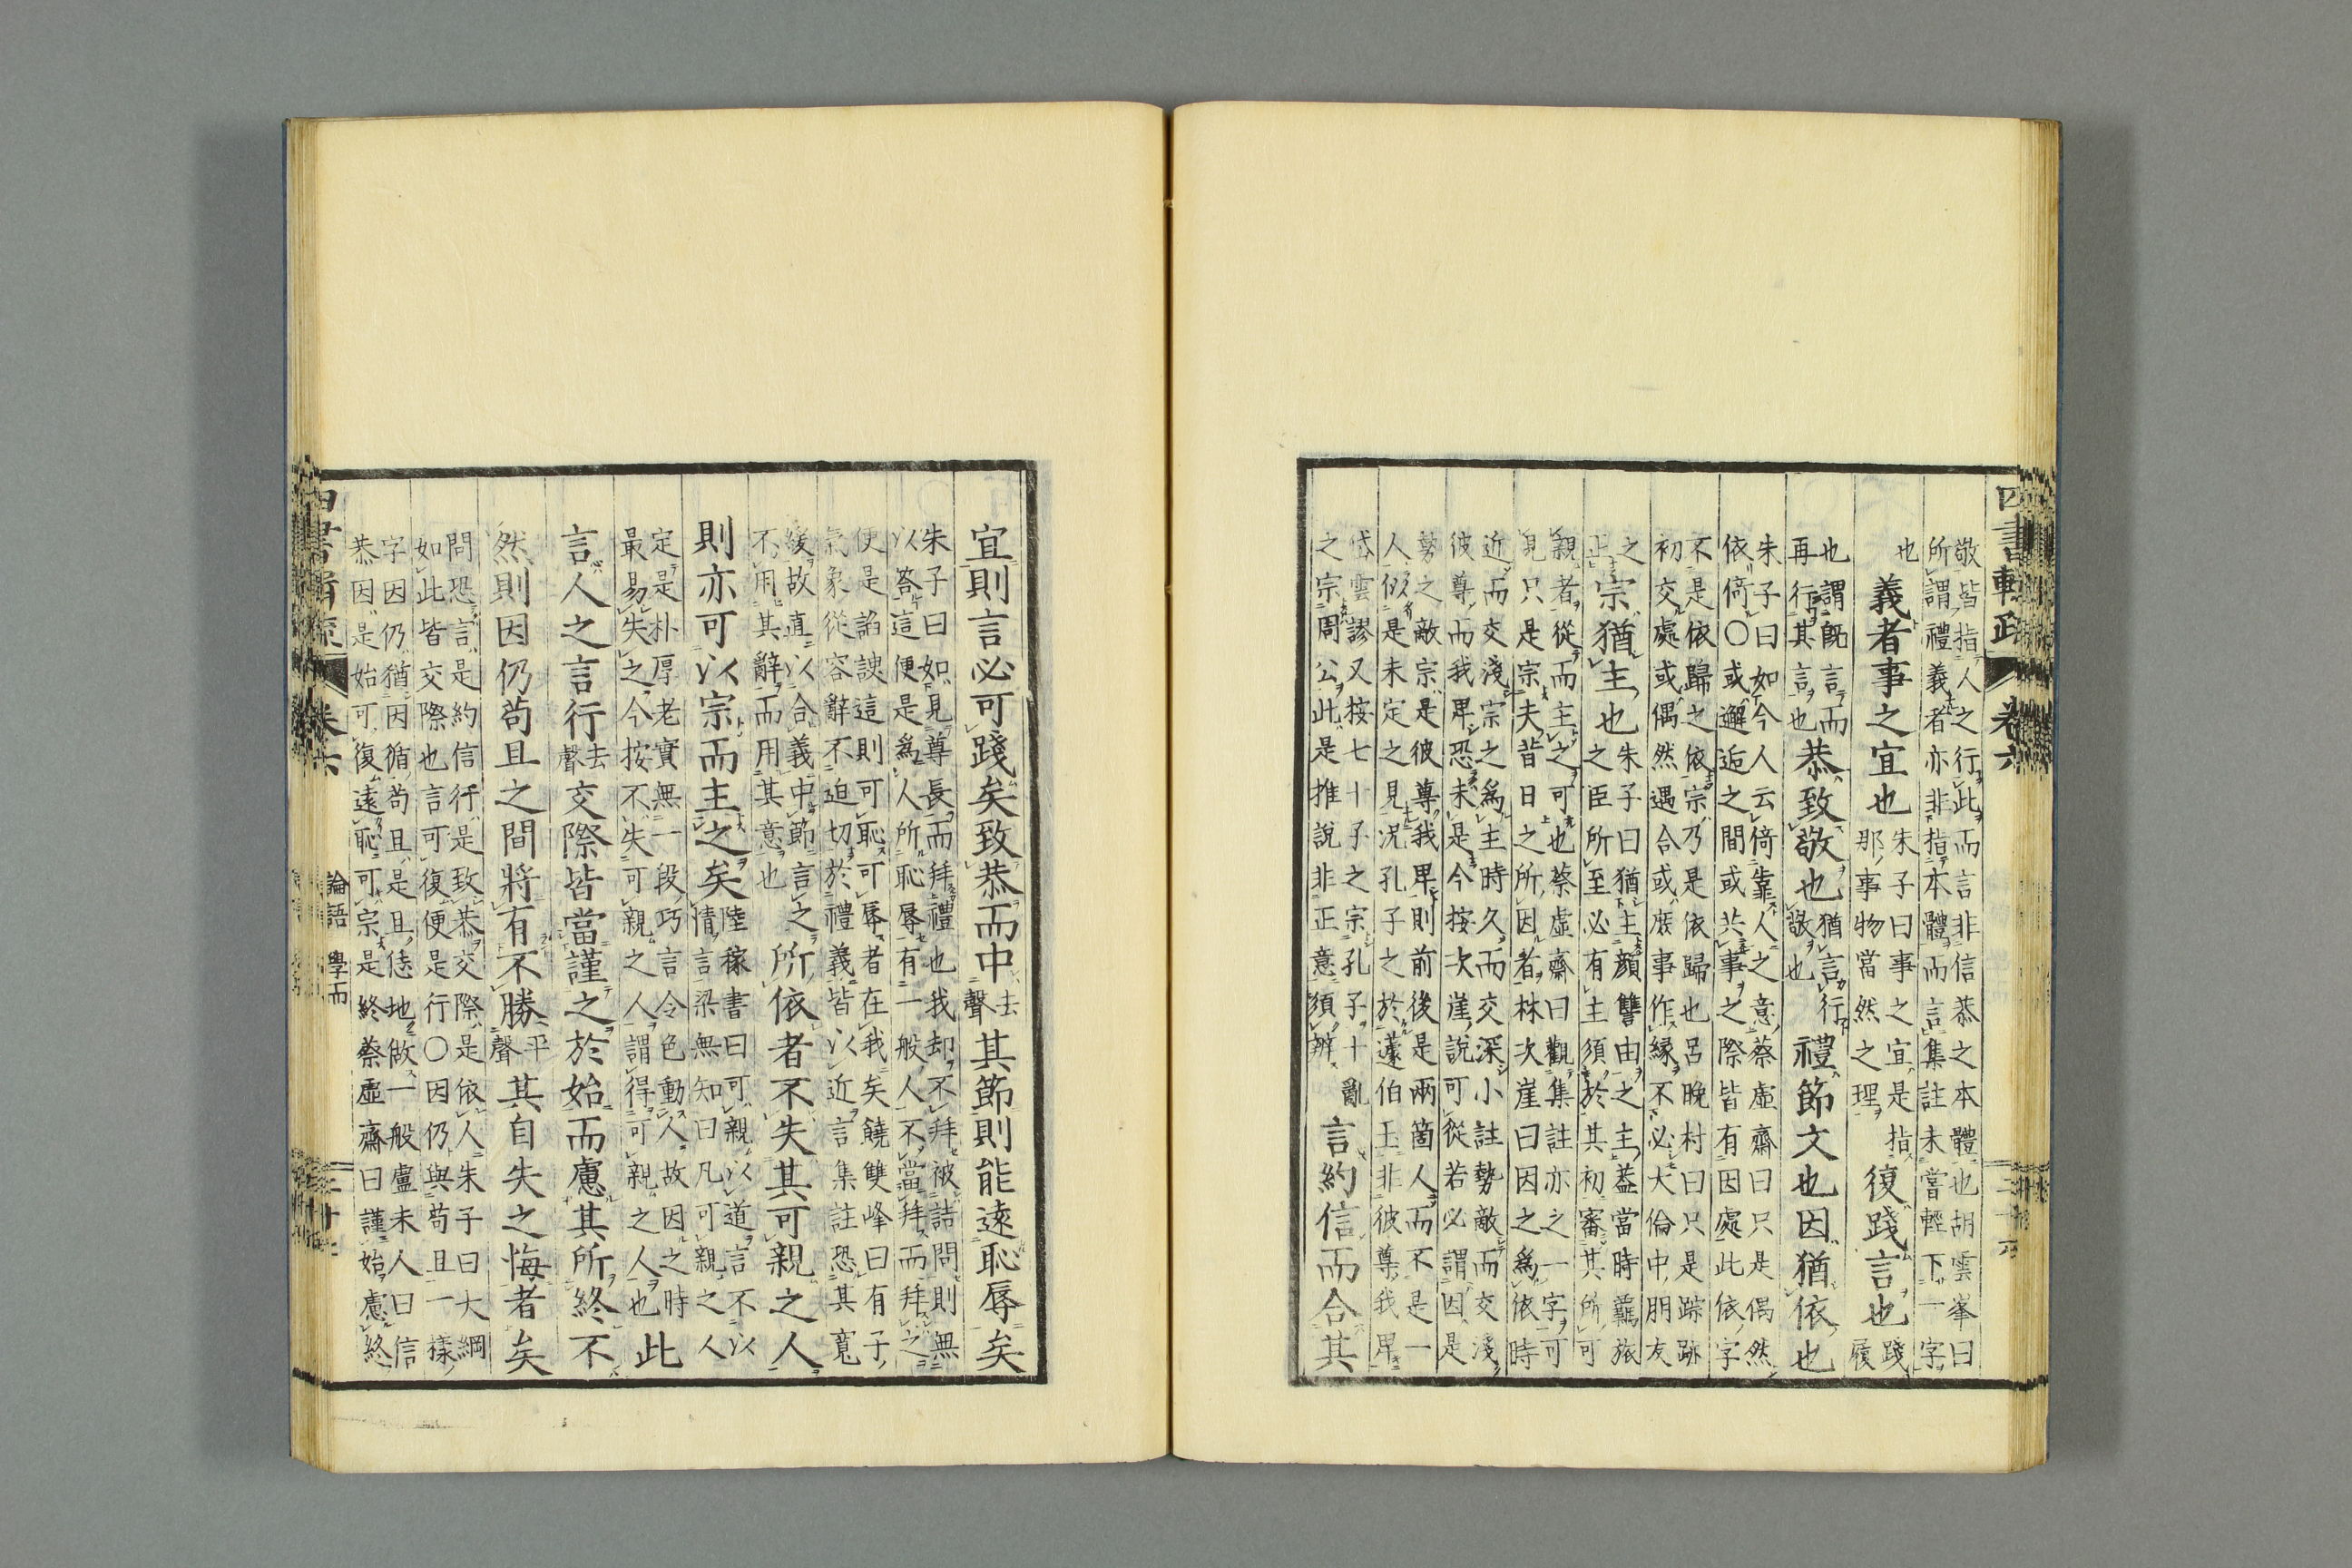 敬皆指人之行此而言非信恭之本體也胡雲峯曰
所謂禮義者亦非指本體而言集註未嘗輕下一字
也
義者事之宜也
朱子曰事之宜是指
那事物當然之理
復踐言也
踐履
也謂既言而
再行其言也
恭致敬也
猶言行
敬也
禮節文也因猶依也
朱子曰如今人云倚靠人之意蔡虛齋曰只是偶然
依倚〇或邂逅之間或共事之際皆有因處此依字
不是依歸之依宗乃是依歸也呂晚村曰只是踪跡
初交處或偶然遇合或庶事作緣不必大倫中朋友
之
正
宗猶主也
朱子曰猶主顔讐由之主蓋當時羈旅
之臣所至必有主須於其初審其所可
親者從而主之可也蔡虛齋曰觀集註亦之一字可
見只是宗夫昔日之所因者林次崖曰因之爲依時
近而交淺宗之爲主時久而交深小註勢敵而交淺
彼尊而我卑恐未是今按次崖說可從若必謂因是
勢之敵宗是彼尊我卑則前後是兩箇人而不是一
人似是未定之見况孔子之於蘧伯玉非彼尊我卑
岱雲謬又按七十子之宗孔子十亂
之宗周公此是推說非正意須辨
言約信而合其
宜則言必可踐矣致恭而中
去聲
其節則能遠恥辱矣
朱子曰如見尊長而拜禮也我却不拜被詰問則無
以答這便是爲人所恥辱有一般人不當拜而拜之
便是諂諛這則可恥可辱者在我矣饒雙峰曰有子
氣象從容辭不迫切於禮義皆以近言集註恐其寬
緩故直以合義中節言之
不用其辭而用其意也
所依者不失其可親之人
則亦可以宗而主之矣
陸稼書曰可親以道言不以
情言梁無知曰凡可親之人
定是朴厚老實無一段巧言令色動人故因之時
最易失之今按不失可親之人謂得可親之人也
此
言人之言行
去聲
交際皆當謹之於始而慮其所終不
然則因仍苟且之間將有不勝
平聲
其自失之悔者矣
問恐言是約信行是致恭交際是依人朱子曰大綱
如此皆交際也言可復便是行〇因仍與苟且一樣
字因仍猶因循苟且是且恁地做一般盧未人曰信
恭因是始可復遠恥可宗是終蔡虛齋曰謹始慮終
卷六
論語 學而
卷六